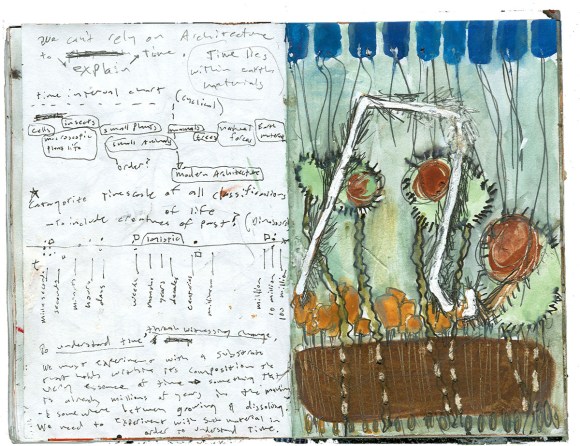 We can't rely on Architecture
to explain Time.
Time lies
within earth
materials
time interval chart
cells
insects
microscopic
plant life
small plants
small animals
mammals
trees
natural
forces
order?
modern Architecture
Categorize timescale of all classifications
of life
- To include creatures of past?
holistic
microseconds
seconds
minutes
hours
days
weeks
months
years
decades
centuries
million
10 million
100 million
To understand time, through witnessing change,
We must experiment with a substrate
that holds within its composition the
very essence of time → something that
is already millions of years in the making
- & somewhere between growing & dissolving.
We need to experiment with such material in
order to understand time.